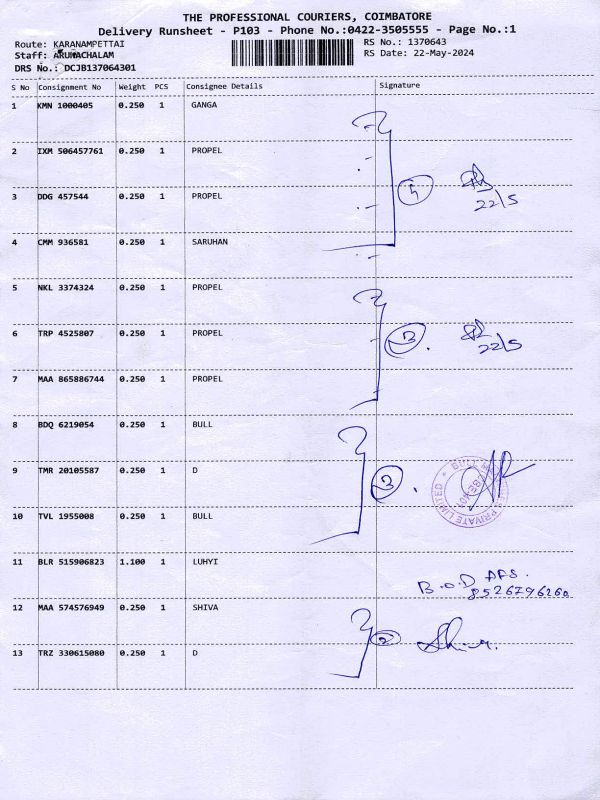 THE PROFESSIONAL COURIERS, COIMBATORE
Delivery Runsheet - P103 - Phone No.:0422-3505555 - Page No.:1
Route: KARANAMPETTAI RS No.: 1370643
Staff: ARUNACHALAM RS Date: 22-May-2024
DRS No.: DCJB137064301
S No Consignment No Weight PCS Consignee Details Signature
1 KMN 1000405 0.250 1 GANGA
2 IXM 506457761 0.250 1 PROPEL
3 DDG 457544 0.250 1 PROPEL
22/5
4 CMM 936581 0.250 1 SARUHAN
5 NKL 3374324 0.250 1 PROPEL
6 TRP 4525807 0.250 1 PROPEL
22/5
7 MAA 865886744 0.250 1 PROPEL
8 BDQ 6219054 0.250 1 BULL
9 TMR 20105587 0.250 1 D
PRIVATE LIMITED
10 TVL 1955008 0.250 1 BULL
11 BLR 515906823 1.100 1 LUHYI
B.O.D
8526796260
12 MAA 574576949 0.250 1 SHIVA
2
13 TRZ 330615080 0.250 1 D